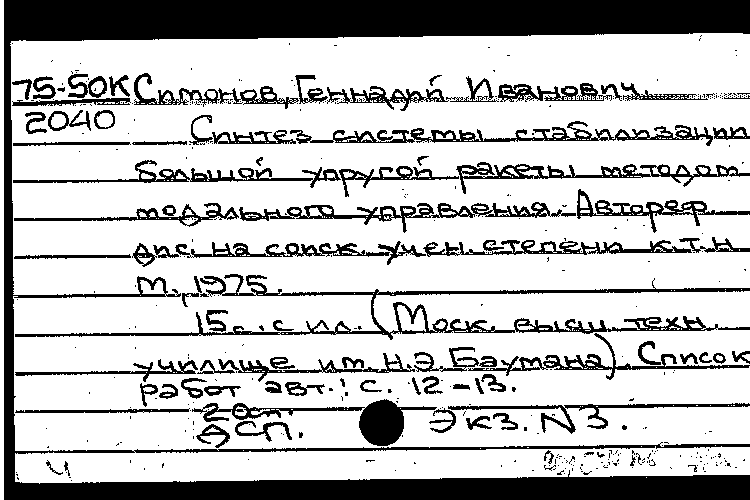 75-50К Симонов, Геннадий Иванович.
2040
Синтез системы стабилизации
большой упругой ракеты методом
модального управления. Автореф.
дис. на соиск. учен. степени к.т.н
М., 1975.
15с. с ил. (Моск. высш. техн.
училище им. Н.Э. Баумана). Список
работ авт.: с. 12-13.
ДСП. Экз. N3.
Ч